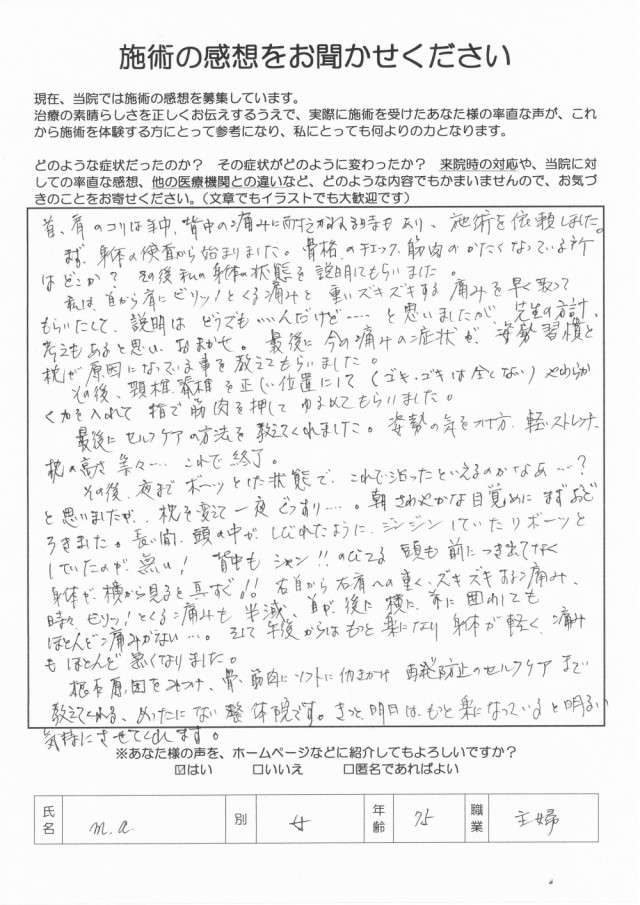 施術の感想をお聞かせください
現在、当院では施術の感想を募集しています。
治療の素晴らしさを正しくお伝えするうえで、実際に施術を受けたあなた様の率直な声が、これ
から施術を体験する方にとって参考になり、私にとっても何よりの力となります。
どのような症状だったのか？ その症状がどのように変わったか？ 来院時の対応や、当院に対
しての率直な感想、他の医療機関との違いなど、どのような内容でもかまいませんので、お気づ
きのことをお寄せください。（文章でもイラストでも大歓迎です）
首、肩のコリは年中、背中の痛みに耐えかねる時もあり、施術を依頼しました。
まず、身体の検査から始まりました。骨格のチェック、筋肉のかたくなっている所
はどこか？ その後私の身体の状態を説明してもらいました。
私は、首から肩にビリッ！とくる痛みと重いズキズキする痛みを早く取って
もらいたくて、説明はどうでも……いんだけど…… と思いましたが、先生の方針、
考えもあると思い、おまかせ。最後に今の痛みの症状が、姿勢、習慣と
枕が原因になっている事を教えてもらいました。
その後、頸椎、脊椎を正しい位置にして（ゴキ・ゴキは全くない）やわらか
く力を入れて指で筋肉を押してゆるめてもらいました。
最後にセルフケアの方法を教えてくれました。姿勢の気をつけ方、軽いストレッチ、
枕の高さ等々…、これで終了。
その後、夜までボーッとした状態で、これで治ったといえるのかなあ…？
と思いましたが、枕を変えて一夜ぐっすり…。朝さわやかな目覚めにまずおど
ろきました。長い間、頭の中がしびれたように、ジンジンしていたりボーッと
していたのが無い！ 背中もシャン!! のびてる 頭も前につき出てなく
身体が横から見ると真すぐ!! 右首から右肩への重く、ズキズキする痛み、
時々ビリッ！とくる痛みも半減、首が後に横に、前に 回れても
ほとんど痛みがない…。そして午後からはもっと楽になり身体が軽く、痛み
もほとんど無くなりました。
根本原因をみつけ、骨、筋肉にソフトに働きかけ 再発防止のセルフケアまで
教えてくれる、めったにない整体院です。きっと、明日は、もっと楽になっていると明るい
気持にさせてくれます。
※あなた様の声を、ホームページなどに紹介してもよろしいですか？
☑はい □いいえ □匿名であればよい
氏名 m.a. 別 女 年齢 75 職業 主婦